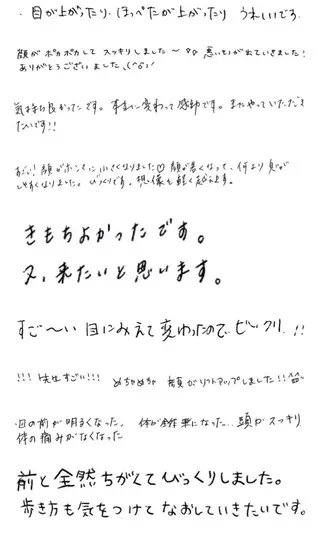 ・目が上がったり、ほっぺたが上がったり うれしいです。
顔がポカポカして スッキリしました〜 悪いものが出ていきました!
ありがとうございました(^o^)/
気持ち良かったです。 本当に変わって感動です。 またやっていただき
たいです!!
すごい! 顔がホントに小さくなりました♡ 顔が 何より 息が
しやすくなりました。 びっくりです。
きもちよかったです。
又、来たいと思います。
すご〜い 目にみえて変わったので、ビックリ!!
!!!先生すごい!!! めちゃめちゃ 顔がリフトアップしました!!^^
目の前が明るくなった。 体が全体 楽になった.. 頭がスッキリ
体の痛みがなくなった
前と全然ちがくてびっくりしました。
歩き方も気をつけてなおしていきたいです。